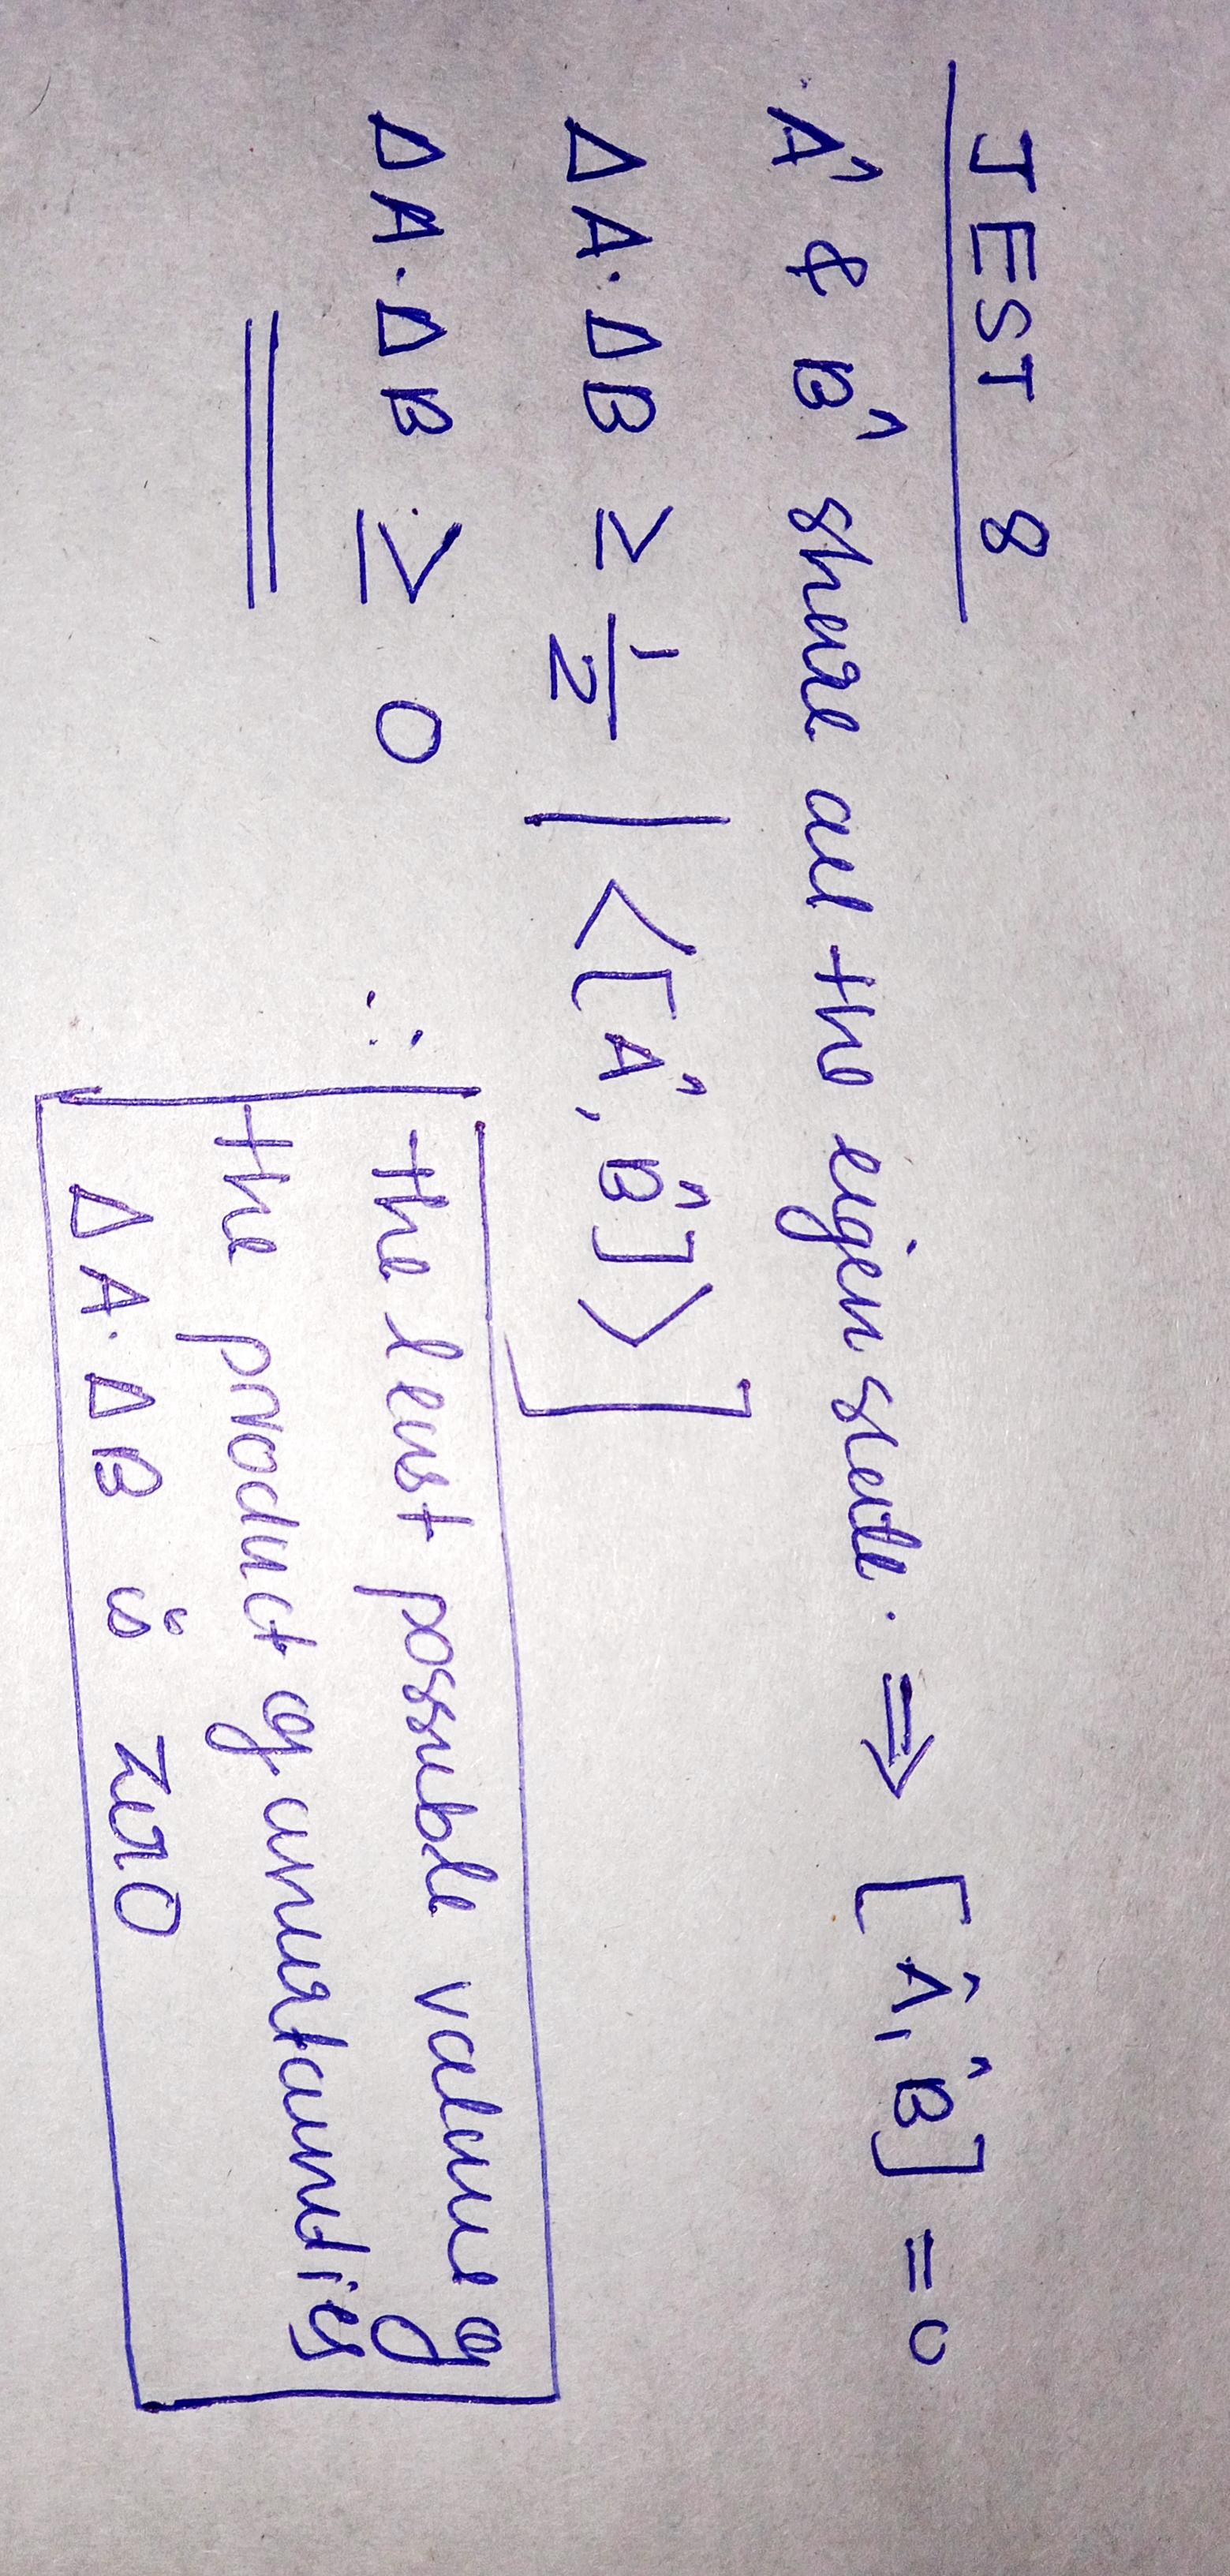 JEST 8
Â & B̂ share all the eigen state. ⇒ [Â, B̂] = 0
ΔA·ΔB ≥ 1/2 |<[Â, B̂]>]
ΔA·ΔB ≥ 0
∴ the least possible value of
the product of uncertainties
ΔA·ΔB is zero